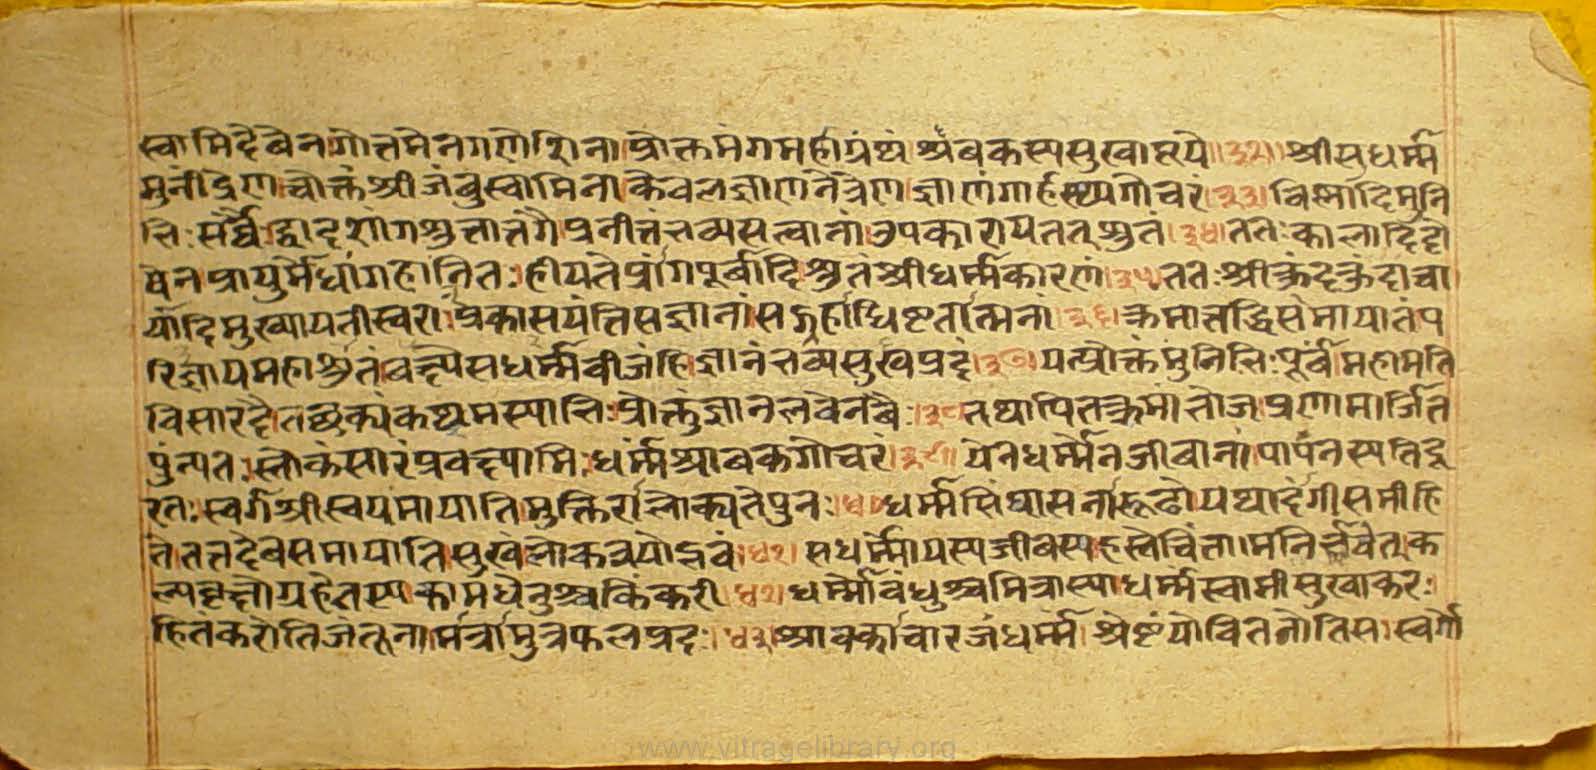 स्वामिदेवेनगोत्तमेनगणेशिना।प्रोक्तमंगमहाग्रंथं श्रवकस्यसुखाप्तये॥३२॥श्रीसुधर्म्म
मुनींद्रेणचोक्तं श्रीजंबुस्वामिना।केवलज्ञाणनेत्रेण।ज्ञाणंगार्हस्थ्यगोचरं।३३।विस्मादिमुनि
भिःसर्वैद्वादशांगश्रुत्तातंगै।प्रनीतंभव्यसत्वानां।उपकारायतत्श्रुतं।३४।ततःकालादिदो
षेन।प्रायुर्मेधांगहानितः।हीयतेप्रांगपूर्वादिश्रुतंश्रीधर्म्मकारणं।३५ततःश्रीकुंदकुंदाचा
र्यादिमुख्यायतीस्वरा।प्रकासयंतिसज्ञानांसगृहाधिष्टतात्मनां।३६।क्रमात्तद्धिसमायातंप
रिज्ञायमहाश्रुतं।वक्ष्येसधर्म्मबीजंहि।ज्ञानंभव्यसुखप्रदं।३७।यत्प्रोक्तंमुनिभिःपूर्वं।महामति
विसारदै।तछक्यंकथमस्याभिःप्रोक्तुंज्ञानलवेनवैः।३८तथापितक्रमांभोज।प्रणामार्जित
पुंन्यतःस्तोकंसारंप्रवक्ष्यामि।धर्म्मश्रावकगोचरं।३९।येनधर्म्मेनजीवानां।पापंनस्यतिदू
रतःस्वर्गश्रीस्वयंमायाति।मुक्तिरालोक्यतेपुनः।४०धर्म्मसिंघासनारूढो।यथादंगीसमीहि
ते।तत्तदेवसमायाति।सुखंलोकत्रयोद्भवं।४१।सधर्म्मोयस्यजीवस्यहस्तेचिंतामनिर्भवेत्।क
ल्पवृक्षोग्रहेतस्य।कामधेनुश्चकिंकरी।४२।धर्म्मोवंधुश्चमित्रास्याधर्म्मस्वामीसुखाकरः।
हितकरोतिजंतूनामत्रामुत्रफलप्रदः।४३।श्रावकाचारजंधर्म्म।श्रेष्टंयोवितनोतिस।स्वर्गे
www.vitragelibrary.org